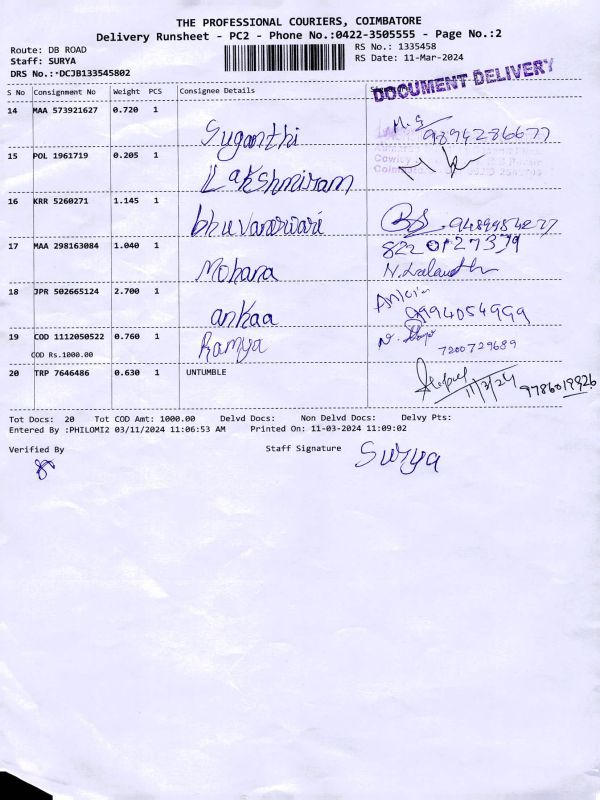 THE PROFESSIONAL COURIERS, COIMBATORE
Delivery Runsheet - PC2 - Phone No.:0422-3505555 - Page No.:2
Route: DB ROAD
Staff: SURYA
DRS No.:-DCJB133545802
RS No.: 1335458
RS Date: 11-Mar-2024
DOCUMENT DELIVERY
S No Consignment No Weight PCS Consignee Details
14 MAA 573921627 0.720 1 Suganthi M.S 9894286677
15 POL 1961719 0.205 1 Lakshmiram
16 KRR 5260271 1.145 1 bhuvaneswari
17 MAA 298163084 1.040 1 Mohana 8220127379
18 JPR 502665124 2.700 1 ankaa 9994054999
19 COD 1112050522 0.760 1 Ramya 7200729689
COD Rs.1000.00
20 TRP 7646486 0.630 1 UNTUMBLE 11/3/24 9786019826
Tot Docs: 20 Tot COD Amt: 1000.00 Delvd Docs: Non Delvd Docs: Delvy Pts:
Entered By :PHILOMI2 03/11/2024 11:06:53 AM Printed On: 11-03-2024 11:09:02
Verified By
Staff Signature Surya